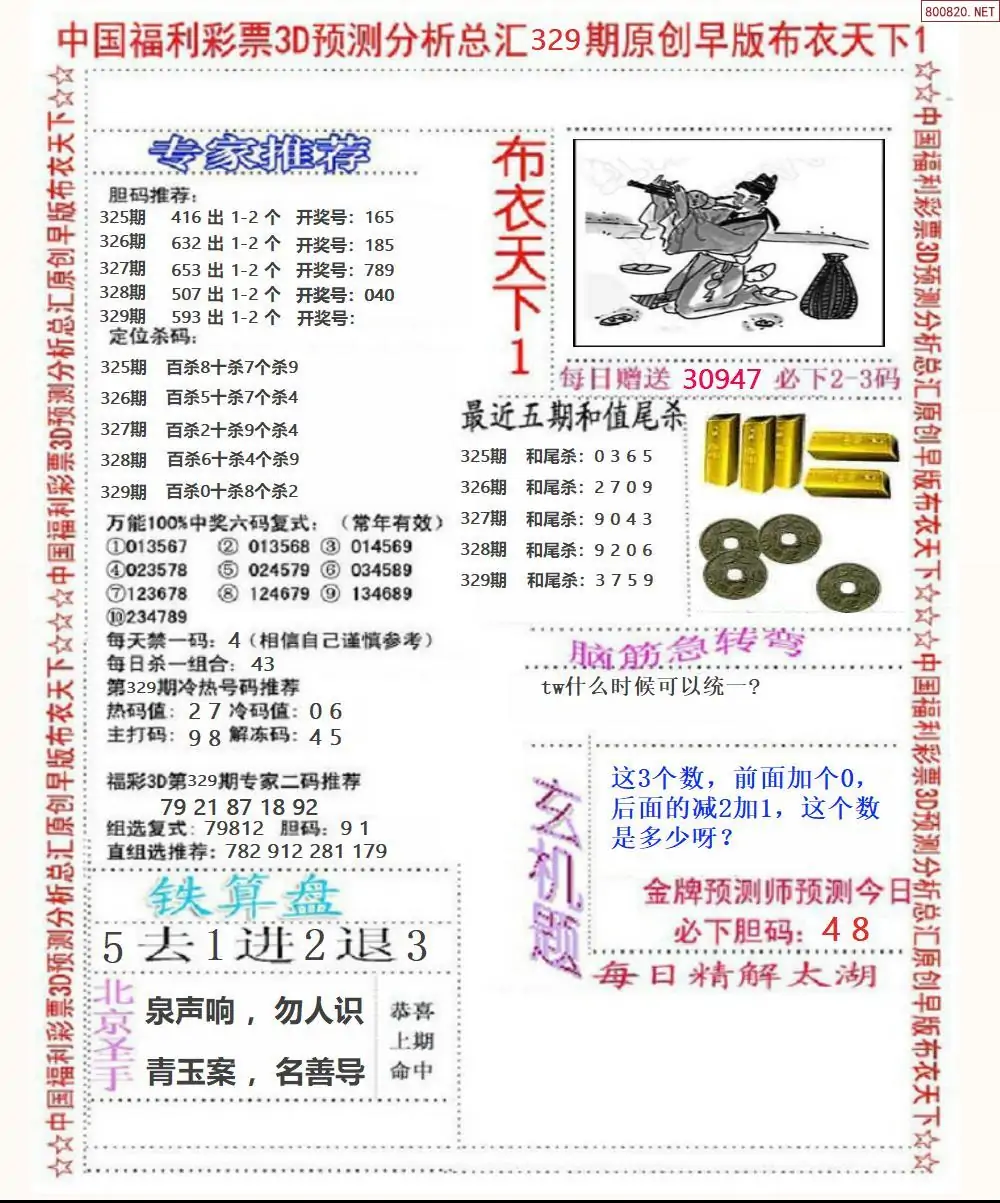 800820.NET
中国福利彩票3D预测分析总汇329期原创早版布衣天下1
☆☆中国福利彩票3D预测分析总汇原创早版布衣天下☆☆中国福利彩票3D预测分析总汇原创早版布衣天下☆☆
专家推荐
胆码推荐：
325期 416 出 1-2 个 开奖号：165
326期 632 出 1-2 个 开奖号：185
327期 653 出 1-2 个 开奖号：789
328期 507 出 1-2 个 开奖号：040
329期 593 出 1-2 个 开奖号：
定位杀码：
325期 百杀8十杀7个杀9
326期 百杀5十杀7个杀4
327期 百杀2十杀9个杀4
328期 百杀6十杀4个杀9
329期 百杀0十杀8个杀2
万能100%中奖六码复式：（常年有效）
①013567 ② 013568 ③ 014569
④023578 ⑤ 024579 ⑥ 034589
⑦123678 ⑧ 124679 ⑨ 134689
⑩234789
每天禁一码：4（相信自己谨慎参考）
每日杀一组合：43
第329期冷热号码推荐
热码值：2 7 冷码值：0 6
主打码：9 8 解冻码：4 5
福彩3D第329期专家二码推荐
79 21 87 18 92
组选复式：79812 胆码：9 1
直组选推荐：782 912 281 179
铁算盘
5去1进2退3
北京圣手
泉声响，勿人识
青玉案，名善导
恭喜
上期
命中
布衣天下1
每日赠送 30947 必下2-3码
最近五期和值尾杀
325期 和尾杀：0 3 6 5
326期 和尾杀：2 7 0 9
327期 和尾杀：9 0 4 3
328期 和尾杀：9 2 0 6
329期 和尾杀：3 7 5 9
脑筋急转弯
tw什么时候可以统一?
玄机题
这3个数，前面加个0，
后面的减2加1，这个数
是多少呀？
金牌预测师预测今日
必下胆码：4 8
每日精解太湖
☆☆中国福利彩票3D预测分析总汇原创早版布衣天下☆☆中国福利彩票3D预测分析总汇原创早版布衣天下☆☆